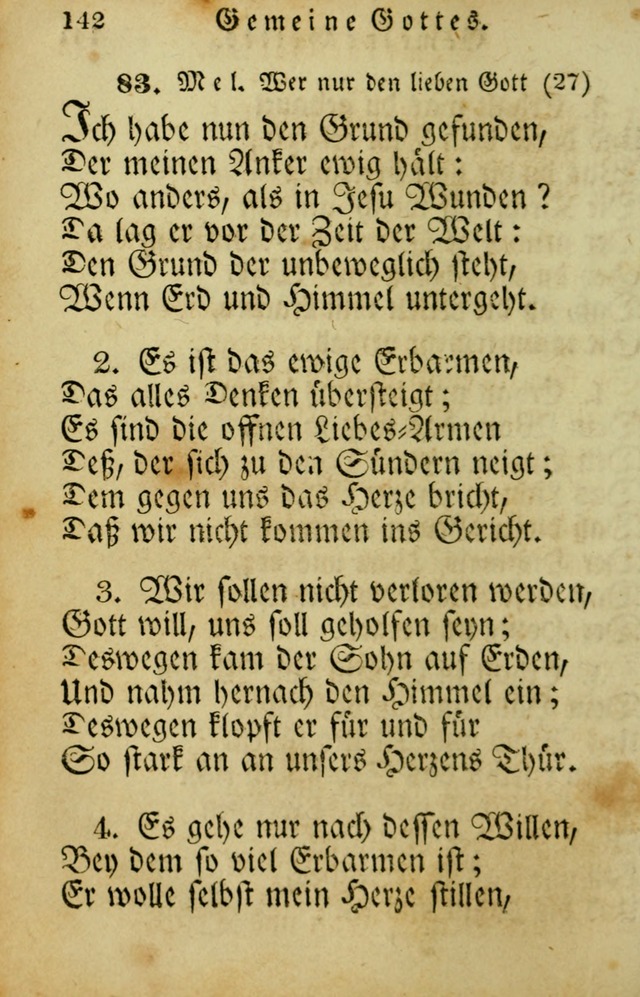 142 Gemeine Gottes.
83. Mel. Wer nur den lieben Gott (27)
Ich habe nun den Grund gefunden,
Der meinen Anker ewig hält:
Wo anders, als in Jesu Wunden?
Da lag er vor der Zeit der Welt:
Den Grund der unbeweglich steht,
Wenn Erd und Himmel untergeht.
2. Es ist das ewige Erbarmen,
Das alles Denken übersteigt;
Es sind die offnen Liebes-Armen
Deß, der sich zu den Sündern neigt;
Dem gegen uns das Herze bricht,
Daß wir nicht kommen ins Gericht.
3. Wir sollen nicht verloren werden,
Gott will, uns soll geholfen seyn;
Deswegen kam der Sohn auf Erden,
Und nahm hernach den Himmel ein;
Deswegen klopft er für und für
So stark an an unsers Herzens Thür.
4. Es gehe nur nach dessen Willen,
Bey dem so viel Erbarmen ist;
Er wolle selbst mein Herze stillen,